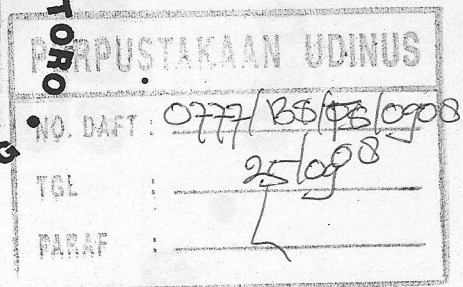 TORO
PERPUSTAKAAN UDINUS
NO. DAFT : 0777/BS/FS/0908
TGL : 25/09 08
PARAF :